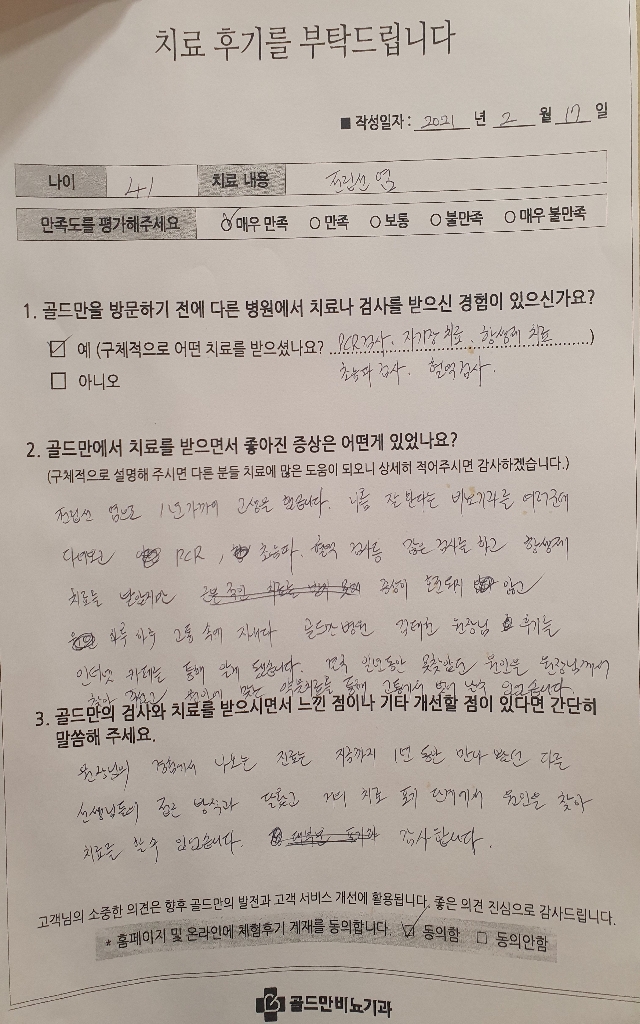 치료 후기를 부탁드립니다
■ 작성일자 : 2021 년 2 월 17 일
나이 41 치료 내용 전립선 염
만족도를 평가해주세요 매우 만족 만족 보통 불만족 매우 불만족
1. 골드만을 방문하기 전에 다른 병원에서 치료나 검사를 받으신 경험이 있으신가요?
예 (구체적으로 어떤 치료를 받으셨나요? PCR검사, 자기장 치료, 항생제 치료)
초음파 검사, 혈액검사.
아니오
2. 골드만에서 치료를 받으면서 좋아진 증상은 어떤게 있었나요?
(구체적으로 설명해 주시면 다른 분들 치료에 많은 도움이 되오니 상세히 적어주시면 감사하겠습니다.)
전립선 염으로 1년 가까이 고생을 했습니다. 나름 잘 본다는 비뇨기과를 여러군데
다녀보고 PCR, 초음파, 혈액 검사등 많은 검사를 하고 항생제
치료를 받았지만 증상이 호전되지 않고
하루 하루 고통 속에 지내다 골드만 병원 원장님 후기를
인터넷 카페를 통해 알게 됐습니다. 일년동안 못찾았던 원인을 원장님께서
찾아 주셨고 맞는 약물치료를 통해 고통에서 벗어 날수 있었습니다.
3. 골드만의 검사와 치료를 받으시면서 느낀 점이나 기타 개선할 점이 있다면 간단히
말씀해 주세요.
원장님의 경험에서 나오는 진료는 지금까지 1년 동안 만나 봤던 다른
선생님들의 접근 방식과 달랐고 저의 치료 포기 단계에서 원인을 찾아
치료를 할수 있었습니다. 감사합니다.
고객님의 소중한 의견은 향후 골드만의 발전과 고객 서비스 개선에 활용됩니다. 좋은 의견 진심으로 감사드립니다.
* 홈페이지 및 온라인에 체험후기 게재를 동의합니다. 동의함 동의안함
골드만비뇨기과